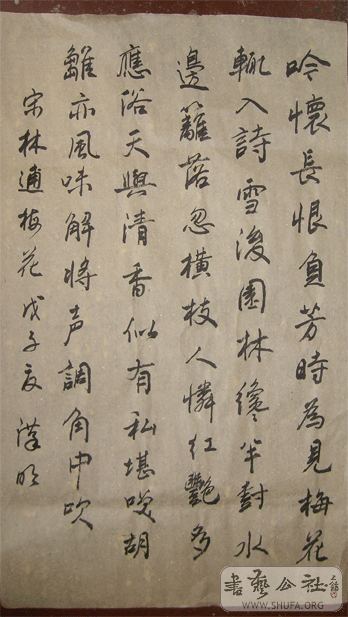 吟懷長恨負芳時為見梅花
輒入詩雪後園林纔半對水
邊籬落忽橫枝人憐紅艷多
應俗天與清香似有私堪笑胡
雛亦風味解將声調角中吹
宋林逋梅花戊子夏漢明
書藝公社
WWW.SHUFA.ORG